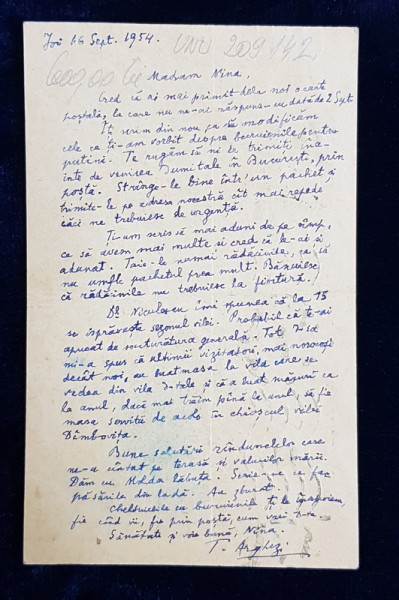 Joi 16 Sept. 1954.
UNU 209142
600,00 lei
Madam Nina,
Cred că ai mai primit dela noi o carte
poștală, la care nu ne-ai răspuns - cu data de 2 Sept.
Îți scrim din nou ca să modificăm
cele ce ți-am vorbit despre buruienile pentru
prieteni. Te rugăm să ni le trimiți îna-
inte de venirea Dumitale în București, prin
poștă. Strânge-le bine într'un pachet și
trimite-le pe adresa noastră cât mai repede
căci ne trebuiesc de urgență.
Ți-am scris să mai aduni de pe câmp,
ca să avem mai multe și cred că le-ai și
adunat. Taie-le numai rădăcinile, ca să
nu umfle pachetul prea mult. Bănuiesc
că rădăcinile nu trebuiesc la fiertură.
Dl. Niculescu îmi spunea că la 15
se isprăvește sezonul vilei. Probabil că te-ai
apucat de scuturătura generală. Tot D-sa
mi-a spus că ultimii vizitatori, mai norocoși
decât noi, au luat masa la vila care se
vedea din vila D-tale și că a luat măsură ca
la anul, dacă mai trăim până la anul, să fie
masa servită de acolo în chioșcul vilei
Dîmbovița.
Bune salutări rândunelelor care
ne-a cântat pe terasă și valurilor mării.
Dăm cu Molda lăbuța. Scrie-ne ce fac
păsările din ladă. Au zburat.
Cheltuielile cu buruienile ți le înapoiem,
fie când vii, fie prin poștă, cum vrei D-ta.
Sănătate și voie bună, Nina.
T. Arghezi